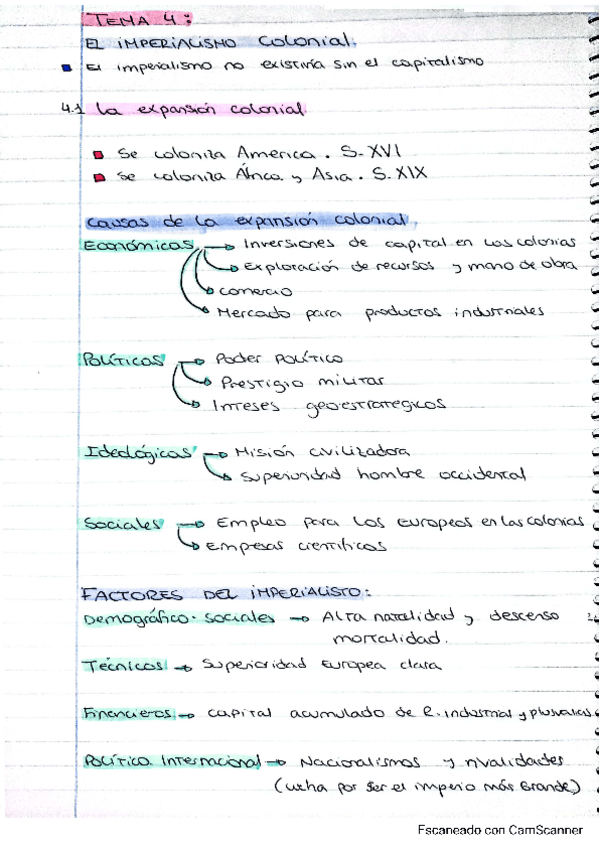 TEMA 4:
EL IMPERIALISMO COLONIAL.
El imperialismo no existiría sin el capitalismo
4.1 La expansión colonial.
Se coloniza America. S. XVI
Se coloniza África y Asia. S. XIX
Causas de la expansión colonial.
Económicas → Inversiones de capital en las colonias
→ Exploración de recursos y mano de obra
→ Comercio
→ Mercado para productos industriales
Políticas → Poder político
→ Prestigio militar
→ Inteses geoestrategicos
Ideológicas → Misión civilizadora
→ Superioridad hombre occidental
Sociales → Empleo para los europeos en las colonias
→ Empesas científicas
FACTORES DEL IMPERIALISTO:
Demográfico-sociales → Alta natalidad y descenso
mortalidad.
Técnicos → Superioridad Europea clara
Financieros → capital acumulado de R. industrial y plusvalías
Político Internacional → Nacionalismos y rivalidades
(lucha por ser el imperio más Grande)
Escaneado con CamScanner